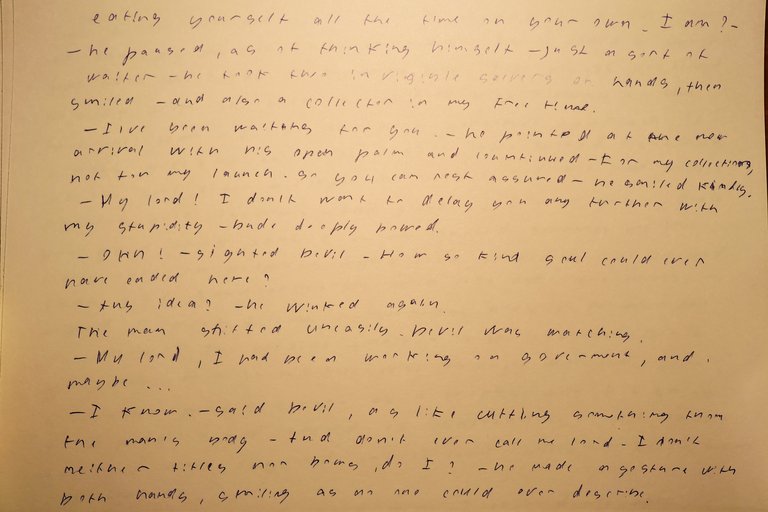 eating yourself all the time on your own. I am? -
- he paused, as of thinking himself - just a sort of
waiter - he took two invisible servers on hands, then
smiled - and also a collector in my free time.
- I've been waiting for you. - he pointed at the new
arrival with his open palm and countinued - For my collection,
not for my launch. So you can rest assured - he smiled kindly.
- My lord! I don't want to delay you any further with
my stupidity - dude deeply bowed.
- Ohh! - sighted Devil - How so kind soul could ever
have ended here?
- Any idea? - he winked again.
The man shifted uneasily. Devil was watching.
- My lord, I had been working on government, and
maybe ...
- I know. - said Devil, as like cutting something from
the man's body - And don't ever call me lord - I don't
neither titles nor bows, do I? - he made a gesture with
both hands, smiling as no one could ever describe.